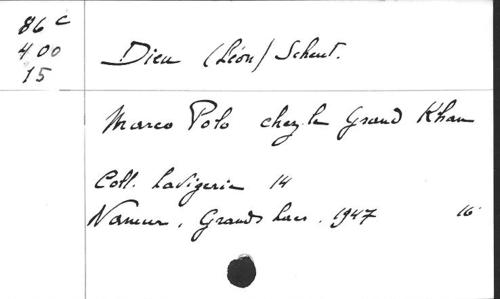 86 C
400
15
Dieu (Léon) Scheut.
Marco Polo chez le Grand Khan
Coll. Lavigerie 14
Namur, Grands Lacs. 1947 16